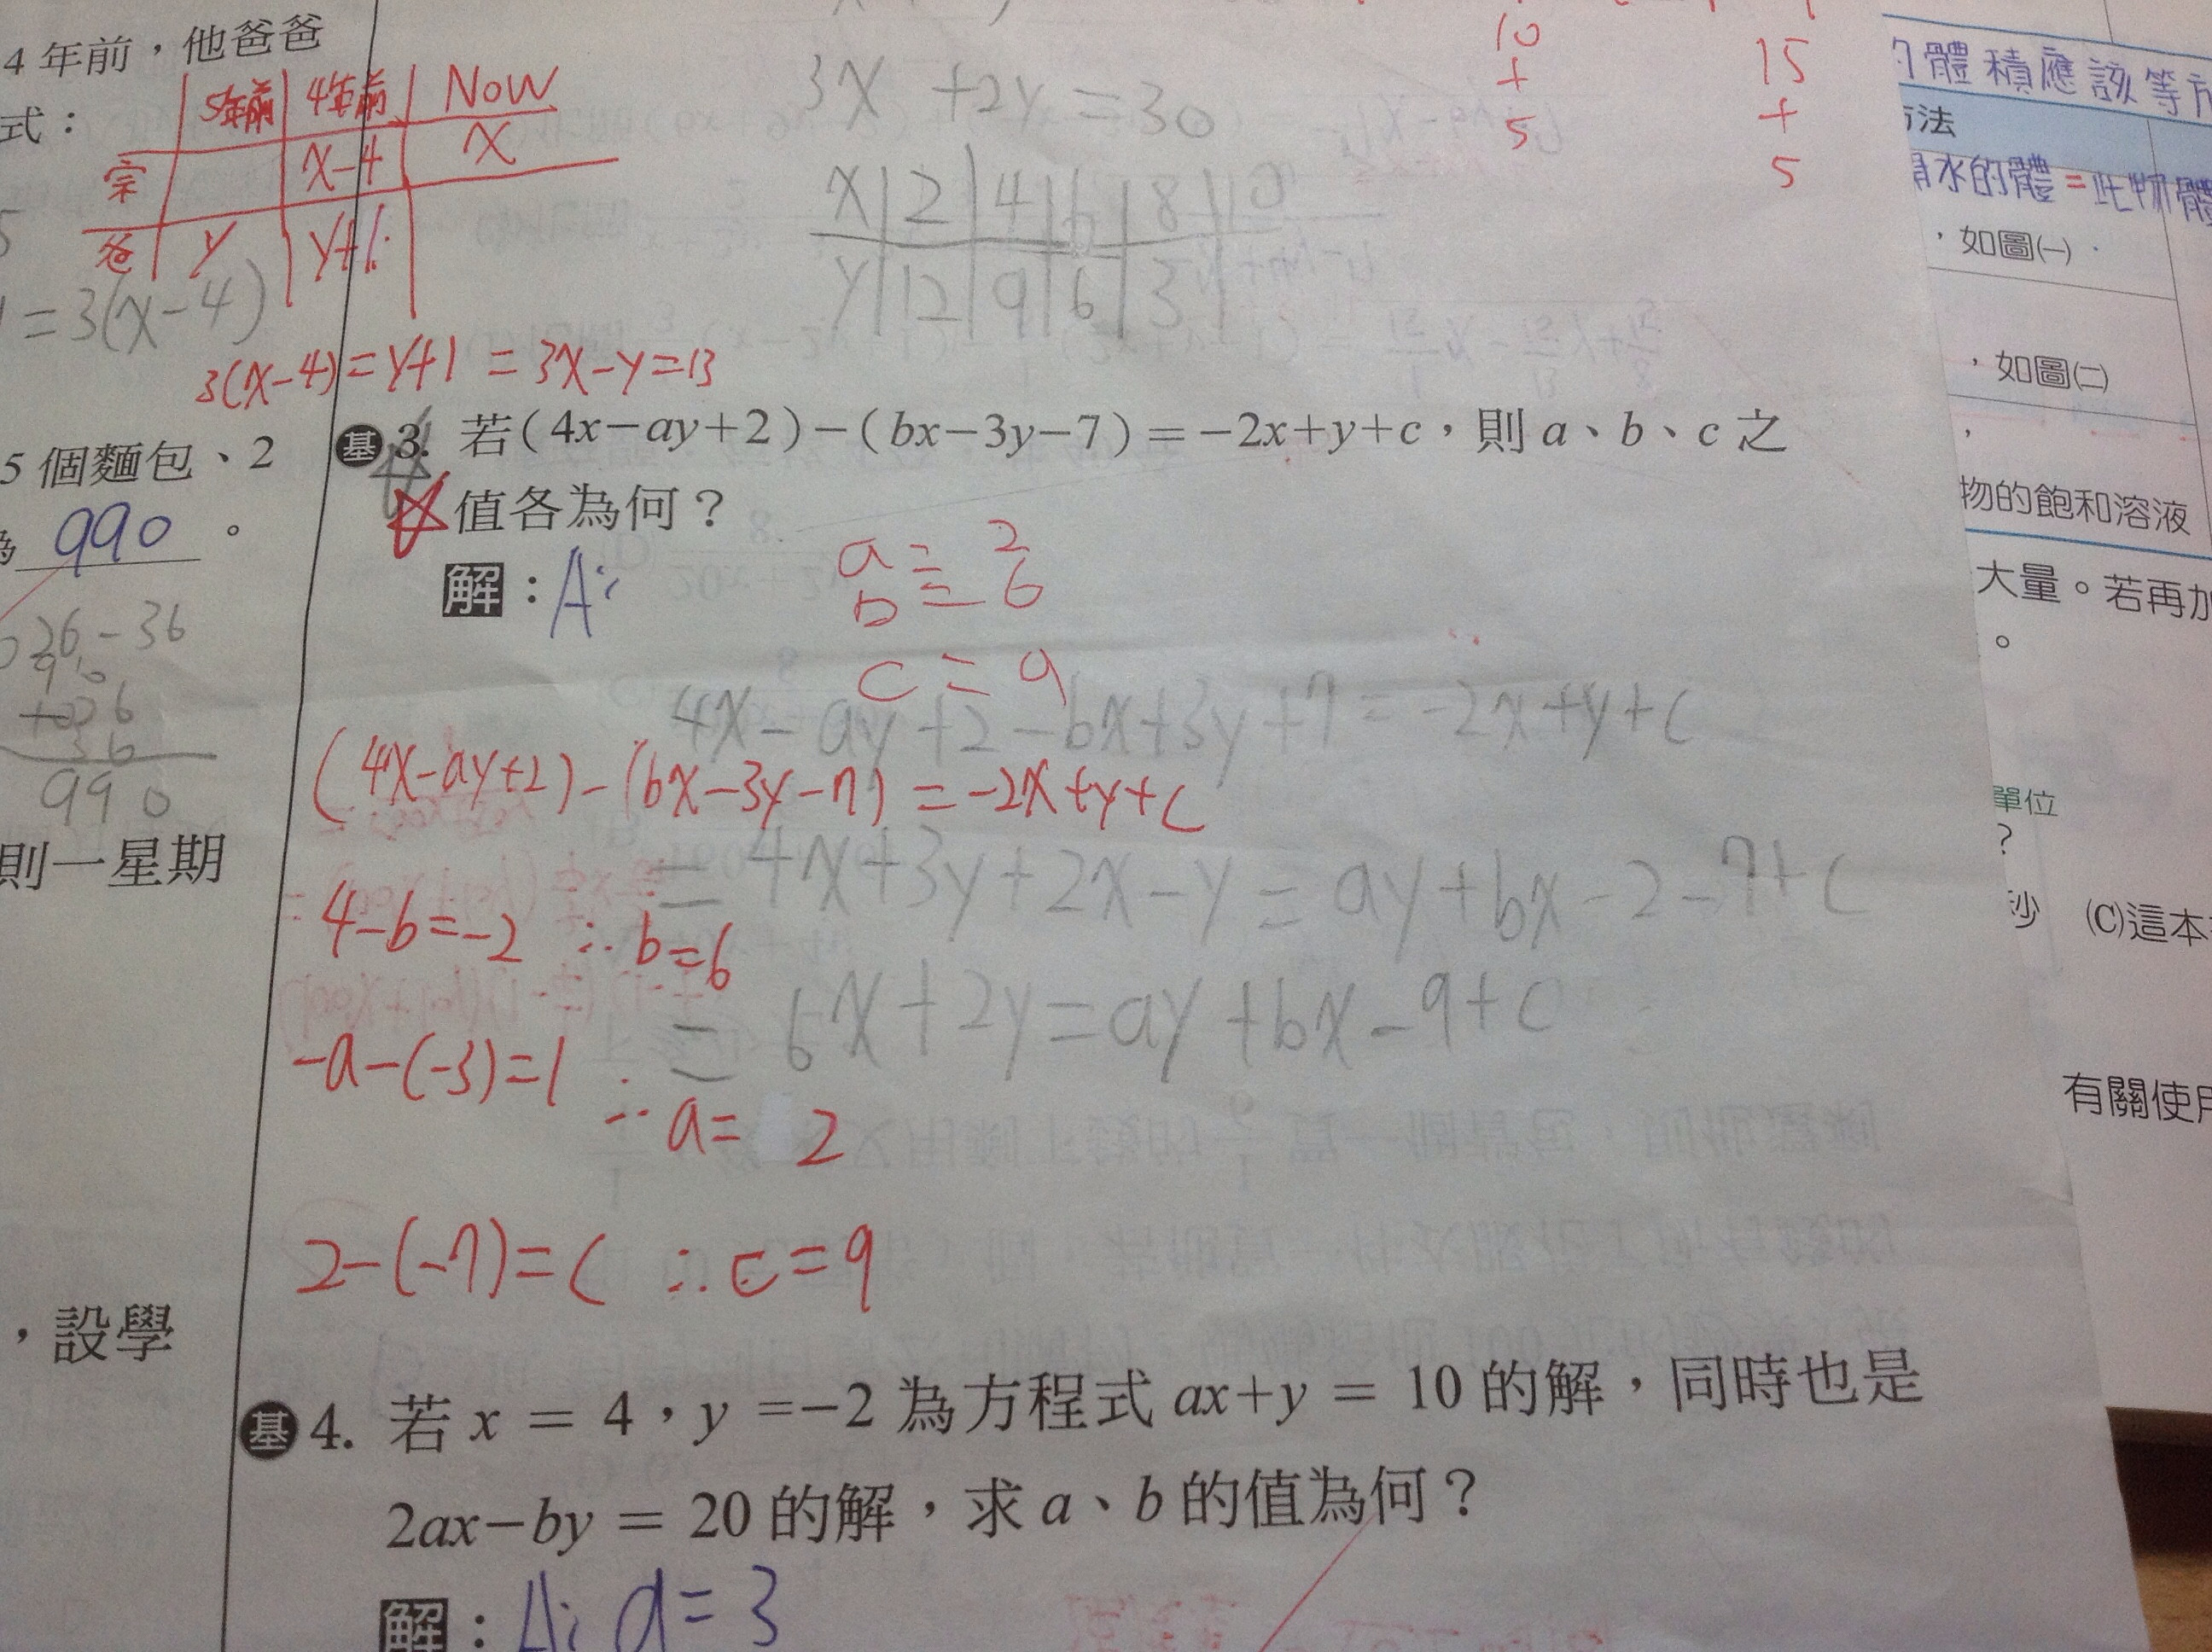 4 年前，他爸爸
式：
5年前 4年前 Now
宗 x-4 x
爸 y y+1
=3(x-4)
3(x-4)=y+1 = 3x-y=13
5 個麵包、2
990 。
26-36
990
則一星期
，設學
3x+2y=30
x 2 4 6 8 10
y 12 9 6 3
10
+
5
15
+
5
基 3. 若(4x－ay+2)－(bx－3y－7)=－2x+y+c，則 a、b、c 之
值各為何？
解：A:
a=2
b=6
c=9
4x-ay+2-bx+3y+7=-2x+y+c
(4x-ay+2)-(bx-3y-7)=-2x+y+c
=4x+3y+2x-y=ay+bx-2-7+c
4-b=-2 ∴b=6
=6x+2y=ay+bx-9+c
-a-(-3)=1 ∴a=2
2-(-7)=c ∴c=9
基 4. 若 x = 4，y =－2 為方程式 ax+y = 10 的解，同時也是
2ax－by = 20 的解，求 a、b 的值為何？
解：A: a=3
的體積應該等於
方法
水的體=此物體
，如圖㈠
，如圖㈡
，
物的飽和溶液
大量。若再加
。
單位
？
秒 (C)這本
有關使用